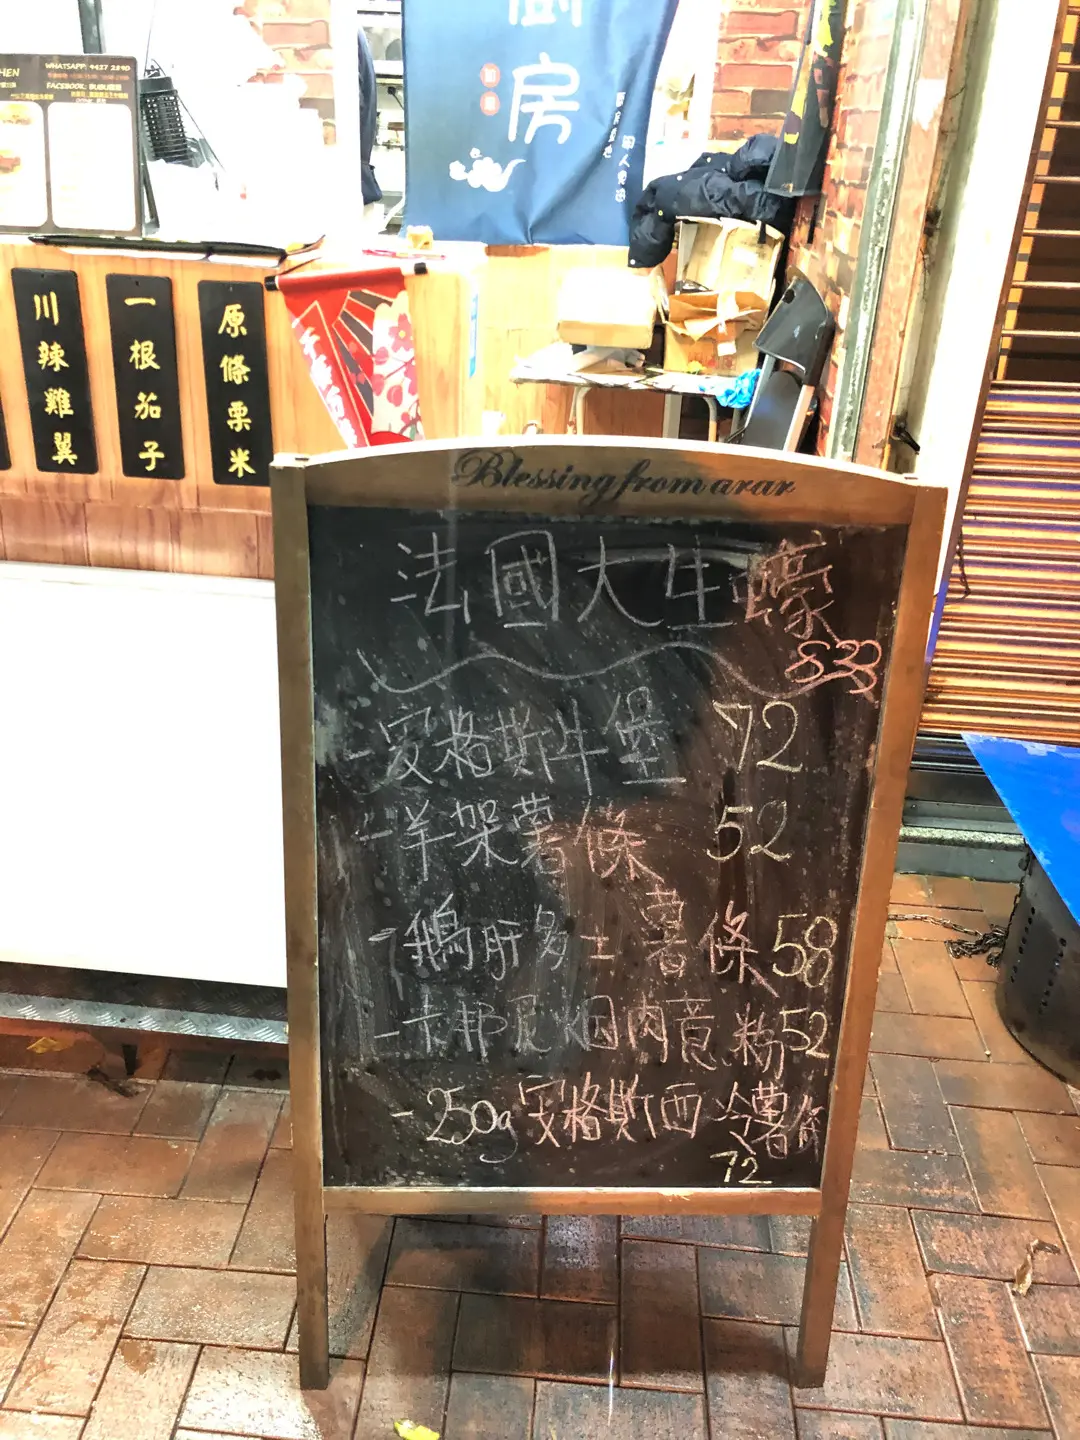 廚房
WHATSAPP: 9437 2890
FACEBOOK: BUBU廚房
川辣雞翼
一根茄子
原條栗米
Blessing from arar
法國大生蠔
$33
-安格斯牛堡 72
-羊架薯條 52
-鵝肝多士薯條 58
-卡邦尼烟肉意粉 52
-250g安格斯西冷薯條
72